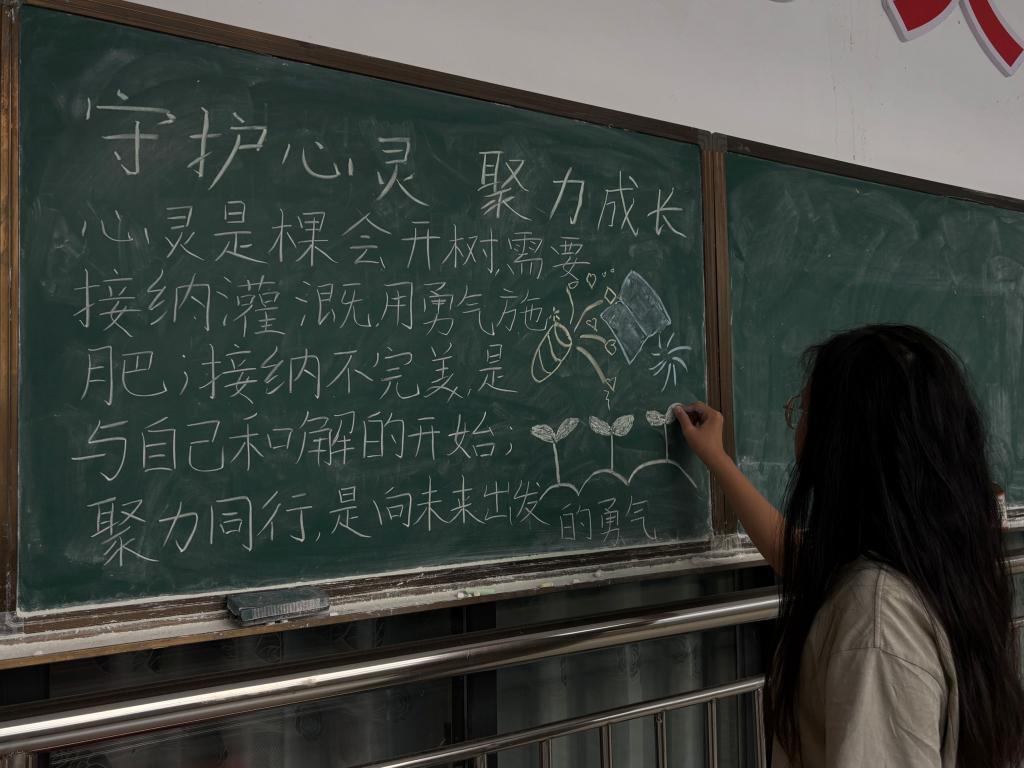 守护心灵 聚力成长
心灵是棵会开树,需要
接纳灌溉,用勇气施
肥;接纳不完美,是
与自己和解的开始;
聚力同行,是向未来出发
的勇气